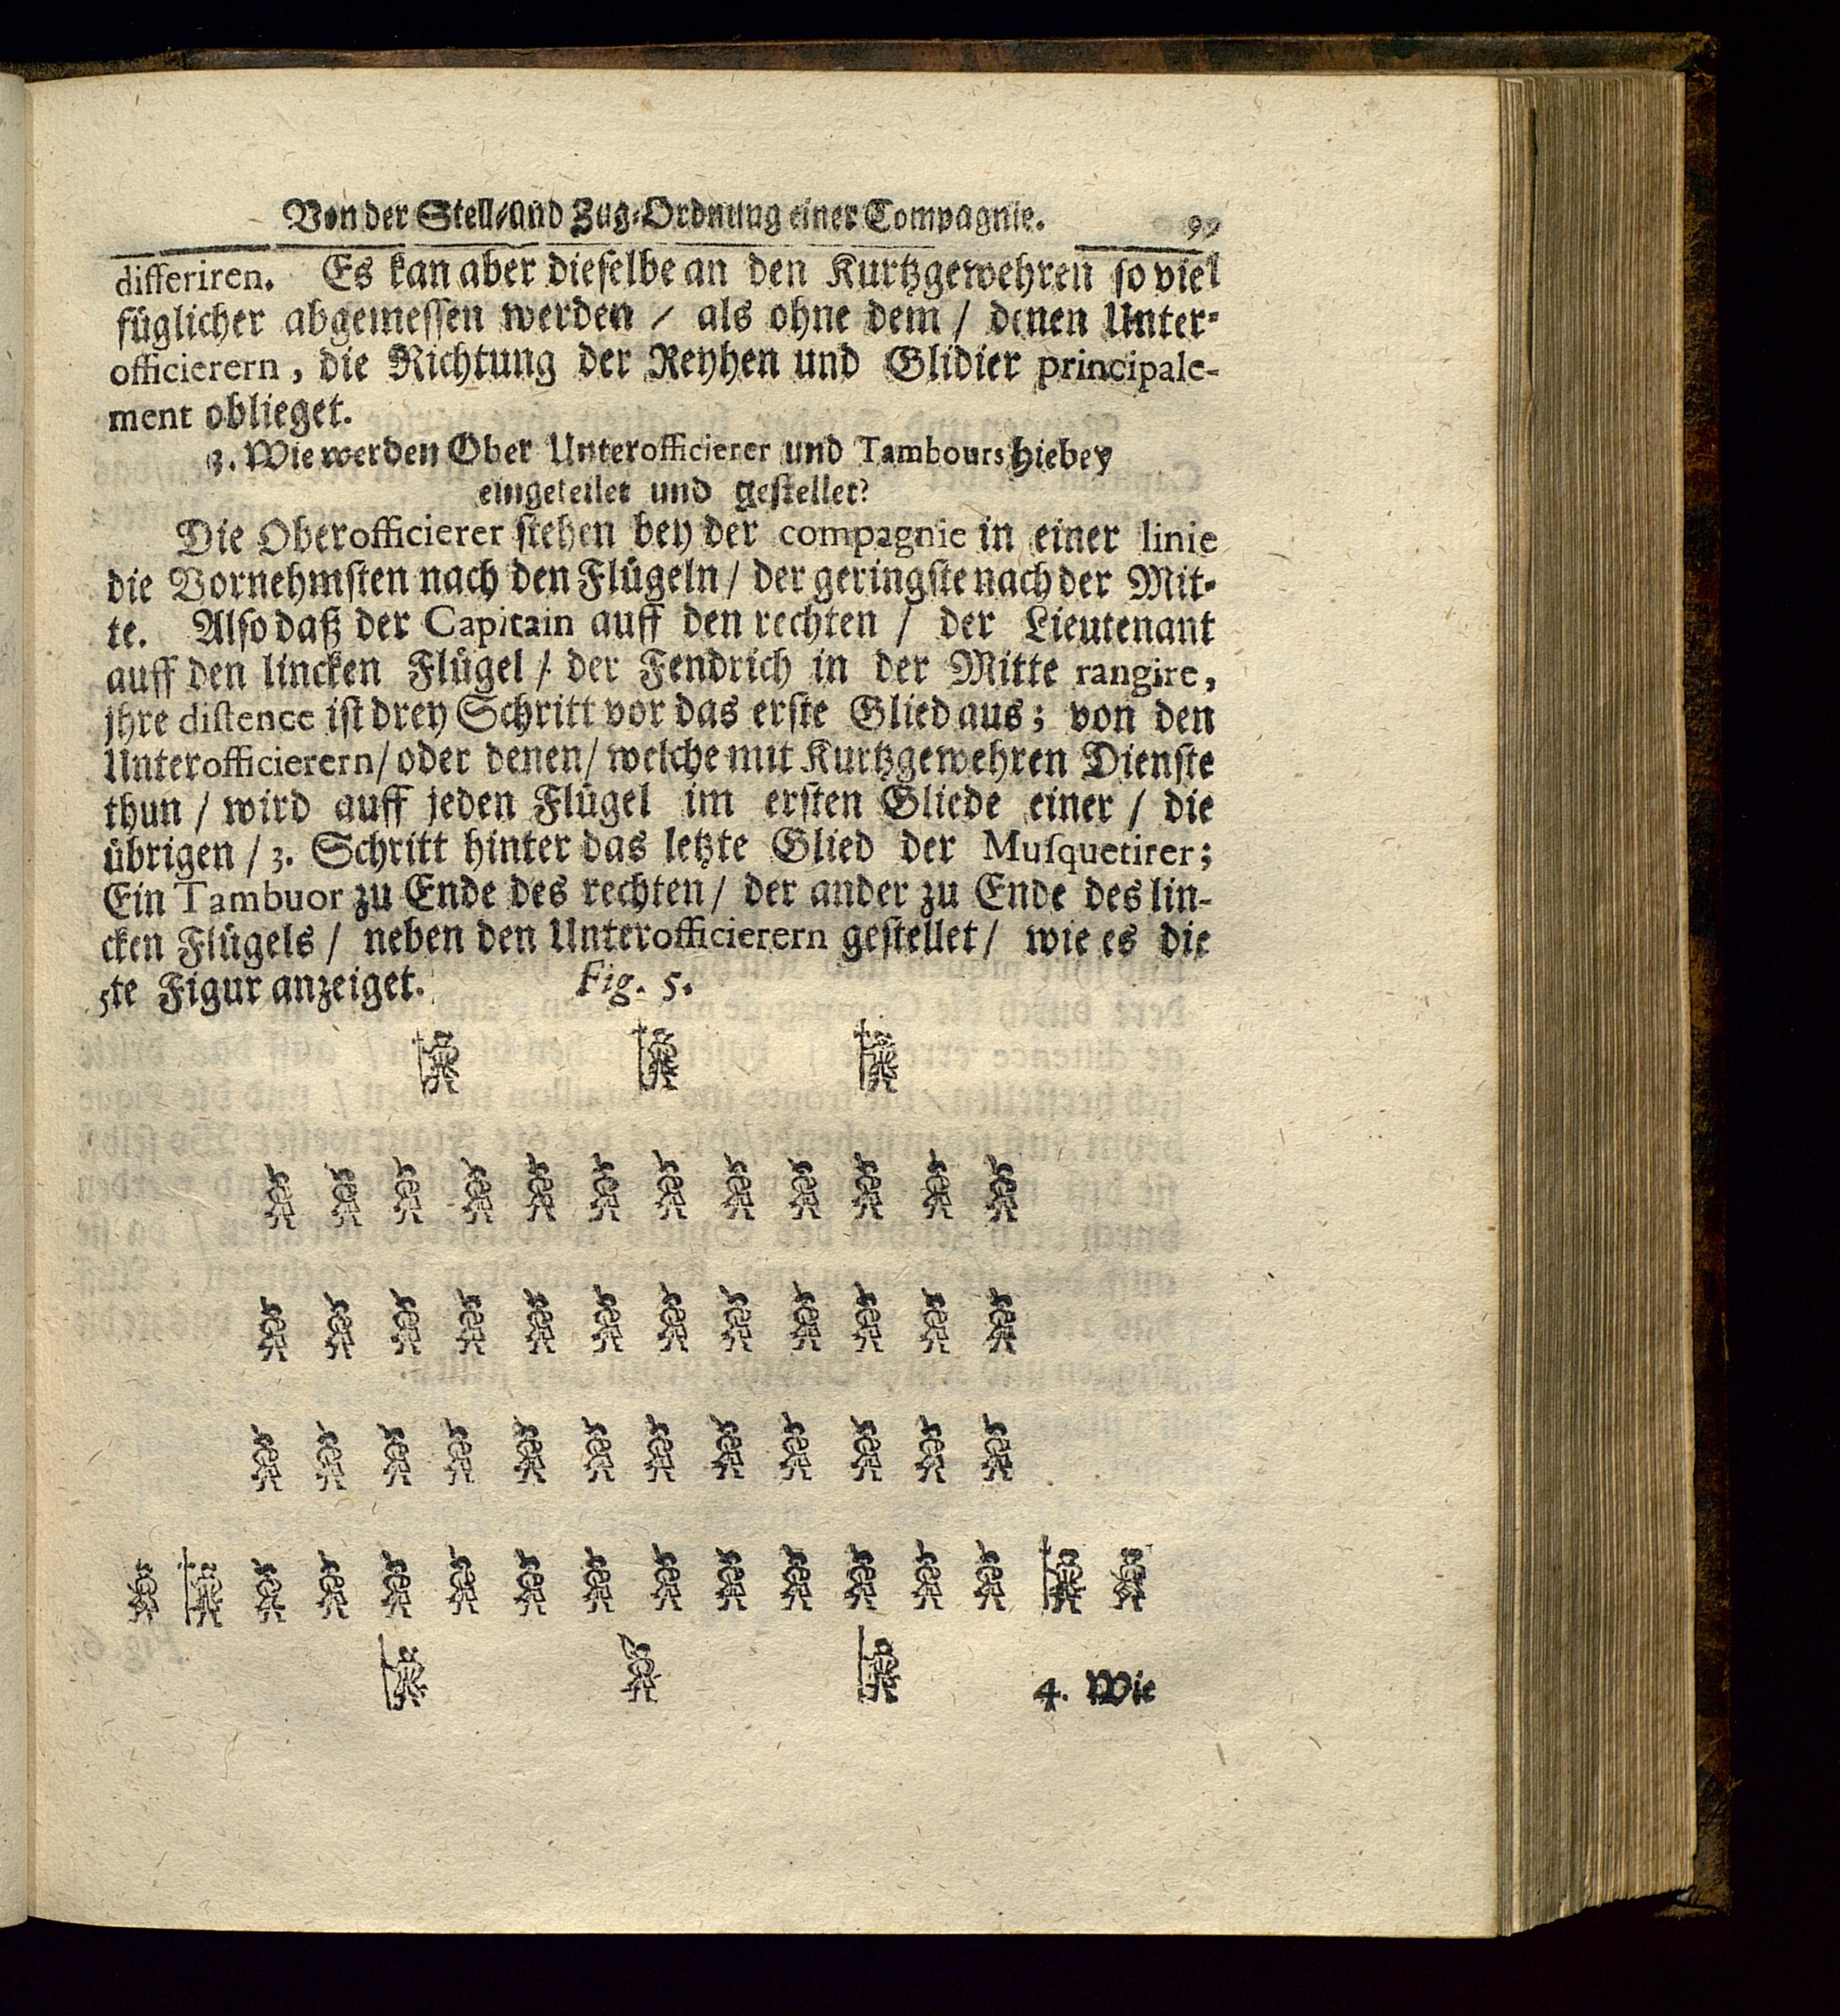 Von der Stell- und Zug-Ordnung einer Compagnie. 99
differiren. Es kan aber dieselbe an den Kurtzgewehren so viel
füglicher abgemessen werden / als ohne dem / denen Unter-
officierern, die Richtung der Reyhen und Glidier principale-
ment oblieget.
3. Wie werden Ober Unterofficierer und Tambours hiebey
eingeteilet und gestellet?
Die Oberofficierer stehen bey der compagnie in einer linie
die Vornehmsten nach den Flügeln / der geringste nach der Mit-
te. Also daß der Capitain auff den rechten / der Lieutenant
auff den lincken Flügel / der Fendrich in der Mitte rangire,
jhre distence ist drey Schritt vor das erste Glied aus; von den
Unterofficierern / oder denen / welche mit Kurtzgewehren Dienste
thun / wird auff jeden Flügel im ersten Gliede einer / die
übrigen / 3. Schritt hinter das letzte Glied der Musquetirer;
Ein Tambuor zu Ende des rechten / der ander zu Ende des lin-
cken Flügels / neben den Unterofficierern gestellet / wie es die
5te Figur anzeiget. Fig. 5.
4. Wie